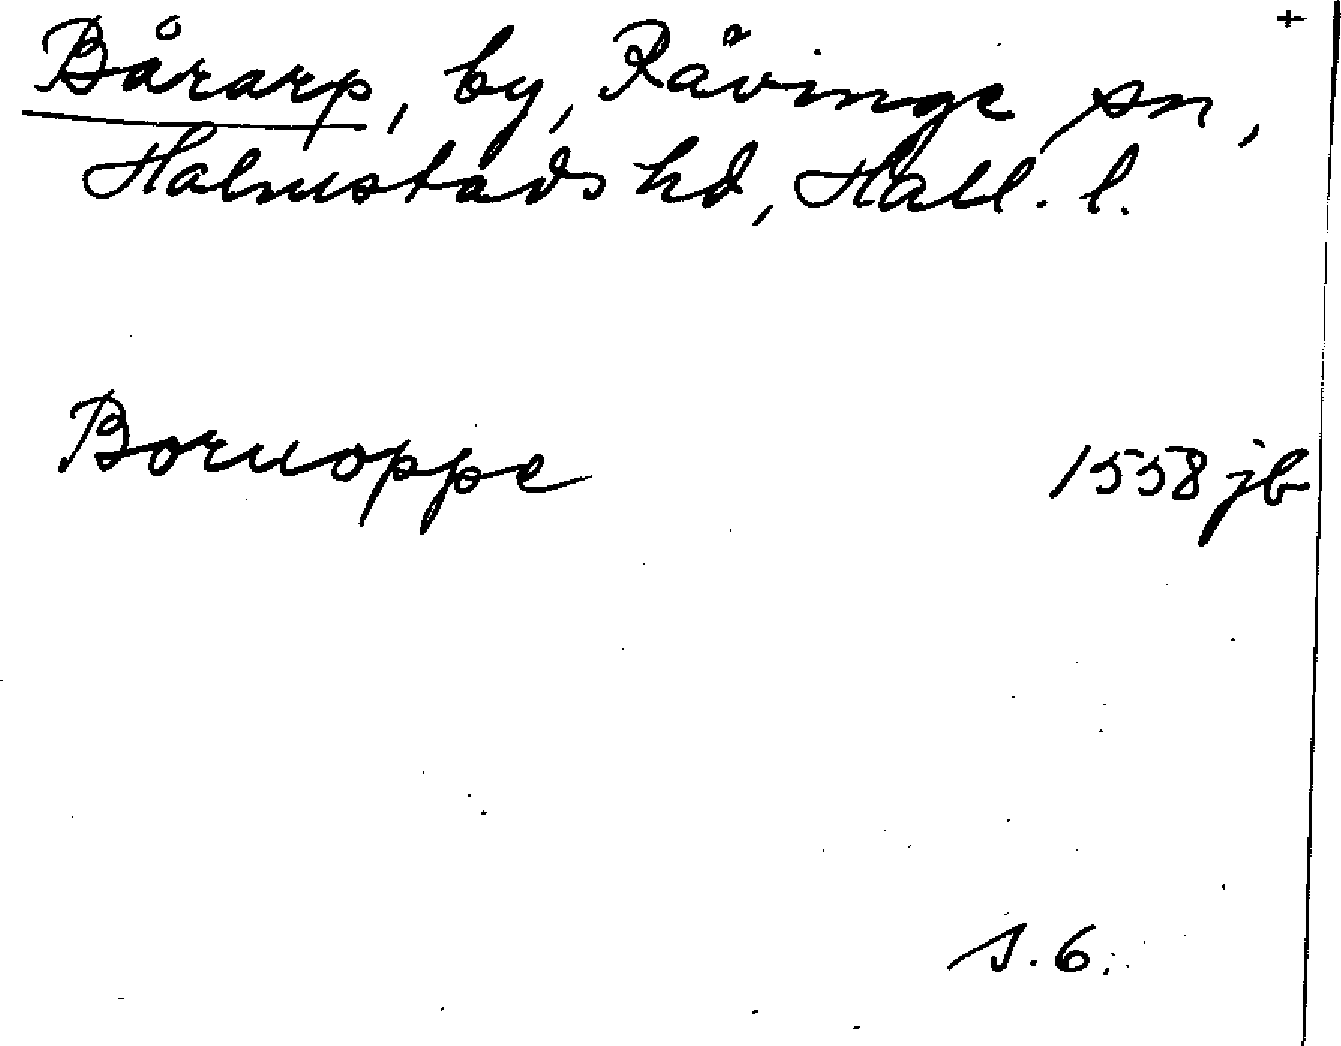 +
Bårarp, by, Råvinge sn,
Halmstads hd, Hall. l.
Boruoppe 1558 jb
s. 6.